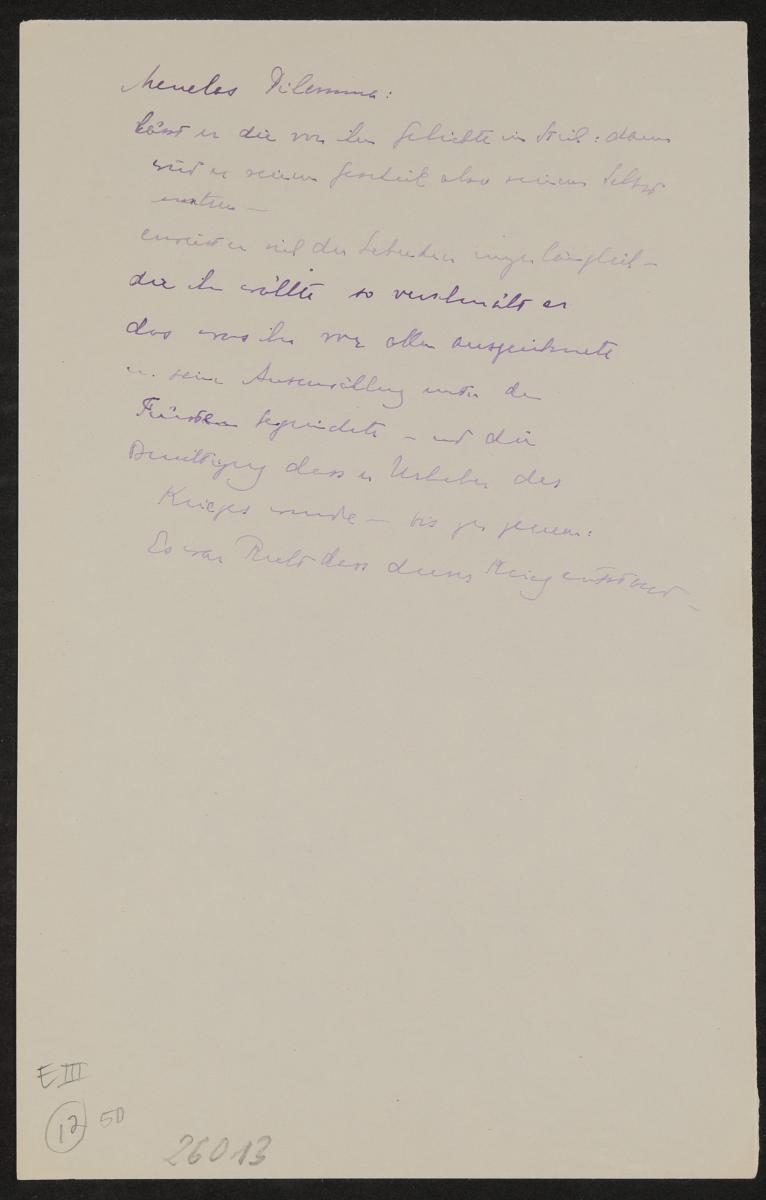 Menelas Dilemma:
lässt er die von ihm Geliebte im Stich: dann
wird er seinem Geschick also seinem Selbst
untreu —
erweist er sich der Lebenden unzulänglich —
die ihn wählte so verschmäht er
das was ihn vor allen auszeichnete
u. seine Auserwählung unter den
Fürsten begründete – und die
dass er Urheber des
Krieges wurde — bis zu jenem:
Es war Recht dass dieser Krieg entstand –
E III
12 50
26013